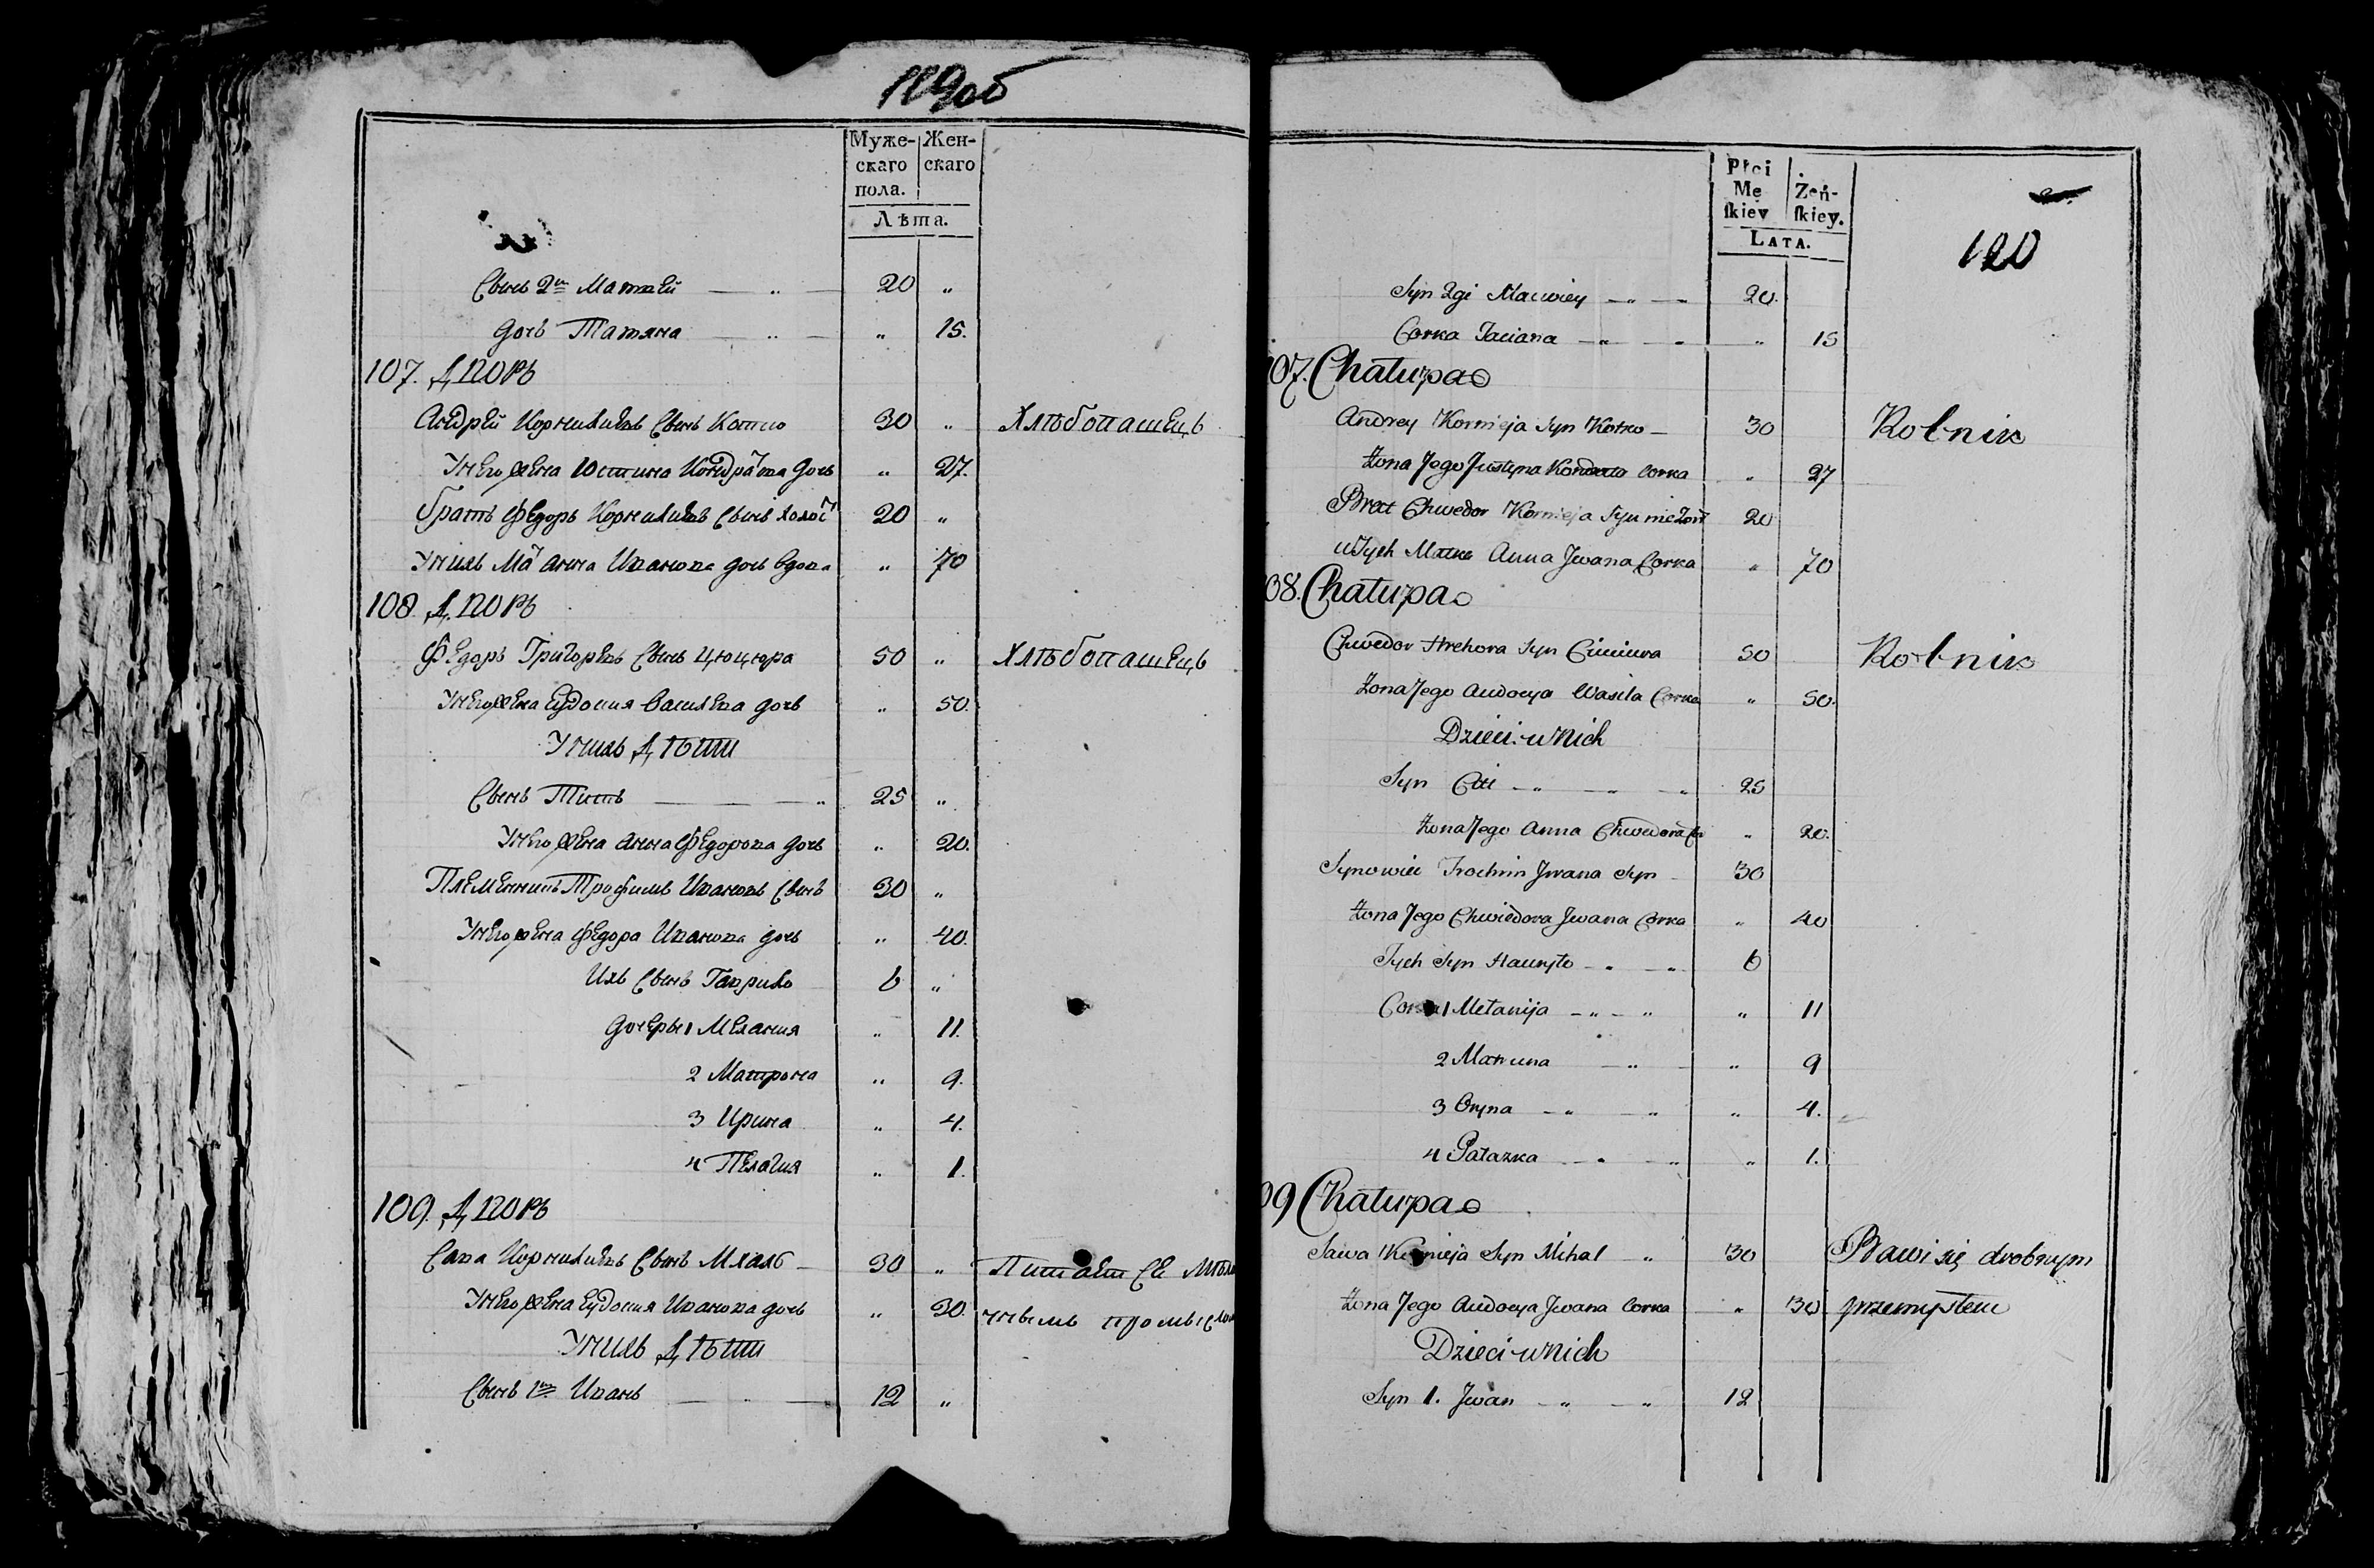 119об
Муже-
скаго
пола.
Жен-
скаго
Лѣта.
Сынъ 2й Матвей — „ — 20 „
дочь Татяна — „ — „ 15.
107. Дворъ
Андрей Корнилиевъ Сынъ Котко 30 „ Хлѣбопашецъ
Унего жена Юстина Кондратова дочь „ 27.
братъ Федоръ Корнилиевъ Сынъ холост 20 „
Унихъ Мать Анна Иванова дочь вдова „ 70
108. Дворъ
Федоръ Григорьевъ Сынъ Цюцюра 50 „ Хлѣбопашецъ
Унего жена Еудокия Василева дочь „ 50.
Унихъ Дѣти
Сынъ Титъ — „ 25 „
Унего жена Анна Федорова дочь „ 20.
Племенникъ Трофимъ Ивановъ Сынъ 30 „
Унего жена Федора Иванова дочь „ 40.
Ихъ Сынъ Гаврило 6 „
дочеры 1 Мелания „ 11.
2 Матрона „ 9.
3 Ирина „ 4.
4 Пелагия „ 1.
109. Дворъ
Сава Корнилиевъ Сынъ Михалъ — 30 „ Питает Се
Унего жена Еудокия Иванова дочь „ 30.
Унихъ Дѣти
Сынъ 1й Иванъ — „ — 12 „
Płci
Mę
ſkiey
Żeń-
ſkiey.
LATA.
120
Syn 2gi Maciwiey — „ — 20.
Corka Taciana — „ — „ „ 15
07. Chałupa
Andrey Kornieja Syn Kotko — 30 Rolnik
Żona Jego Justyna Kondrata Corka „ 27
Brat Chwedor Kornieja Syn nieżon 20
uTych Matka Anna Jwana Corka „ 70
08. Chałupa
Chwedor Hrehora Syn Ciuciura 50 Rolnik
Żona Jego Audocya Wasila Corka „ 50.
Dzieci unich
Syn Cit — „ — „ 25
Żona Jego Anna Chwedora „ 20.
Synowiec Trochim Jwana Syn 30
Żona Jego Chwiedora Jwana Corka „ 40
Tych Syn Hauryło — „ — „ 6
Corka 1 Mełanija — „ — „ „ 11
2 — „ „ 9
3 Oryna — „ — „ „ 4.
4 Pałazka — „ — „ „ 1.
09 Chałupa
Sawa Kornieja Syn Mihal — „ 30 Bawi się drobnym
Żona Jego Audocya Jwana Corka „ 30 przemysłem
Dzieci unich
Syn 1. Jwan — „ — „ 12